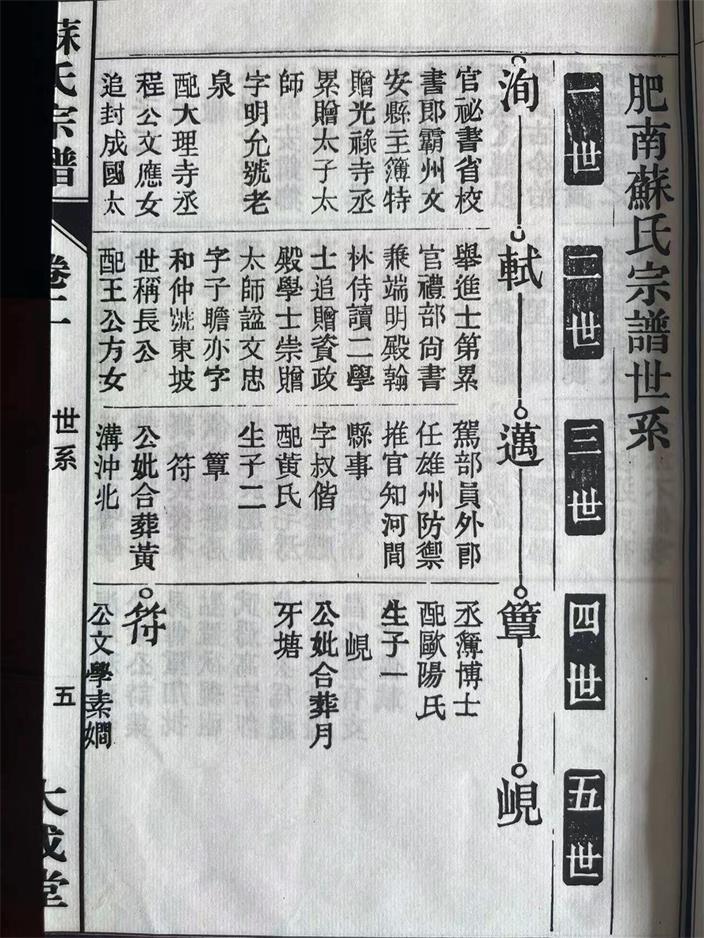 肥南蘇氏宗譜世系
一世
二世
三世
四世
五世
洵
官祕書省校
書郎霸州文
安縣主簿特
贈光祿寺丞
累贈太子太
師
字明允號老
泉
配大理寺丞
程公文應女
追封成國太
軾
舉進士第累
官禮部尙書
兼端明殿翰
林侍讀二學
士追贈資政
殿學士崇贈
太師諡文忠
字子瞻亦字
和仲號東坡
世稱長公
配王公方女
邁
駕部員外郎
任雄州防禦
推官知河間
縣事
字叔偕
配黃氏
生子二
簟
符
公妣合葬黃
溝沖北
簟
丞簿博士
配歐陽氏
生子一
峴
公妣合葬月
牙塘
符
公文學素嫺
峴
蘇氏宗譜
卷二
世系
五
大成堂